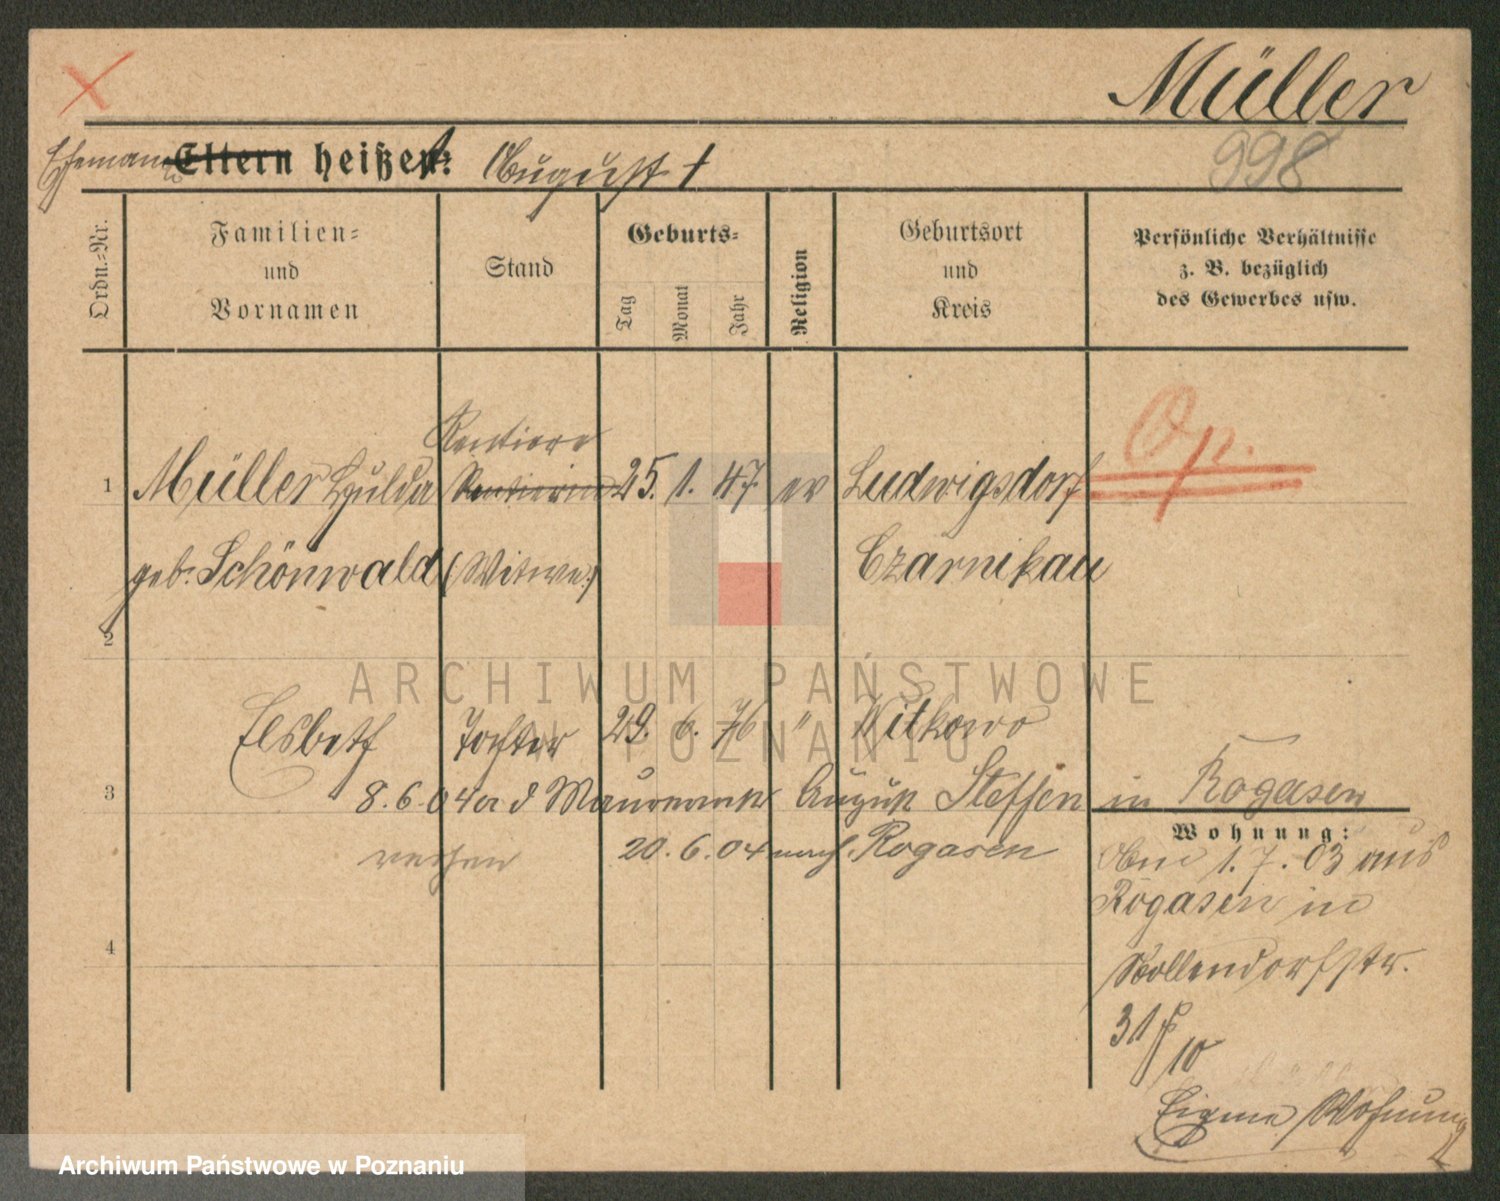 Müller
998
Ehemann Eltern heißen: August †
Ordn.=Nr.
Familien=
und
Vornamen
Stand
Geburts=
Tag
Monat
Jahr
Religion
Geburtsort
und
Kreis
Persönliche Verhältnisse
z. B. bezüglich
des Gewerbes usw.
Rentiere
1 Müller Hulda Rentierin 25. 1. 47. ev Ludwigsdorf
geb. Schönwald (Witwe) Czarnikau
2
Elsbeth Tochter 29. 6. 76 " Witkowo
3 8. 6. 04 a d August Steffen in Rogasen
20. 6. 04 nach Rogasen
Wohnung:
1. 7. 03 aus
Rogasen in
Nollendorfstr.
4
31
10
Eigene Wohnung
ARCHIWUM PAŃSTWOWE
W POZNANIU
Archiwum Państwowe w Poznaniu